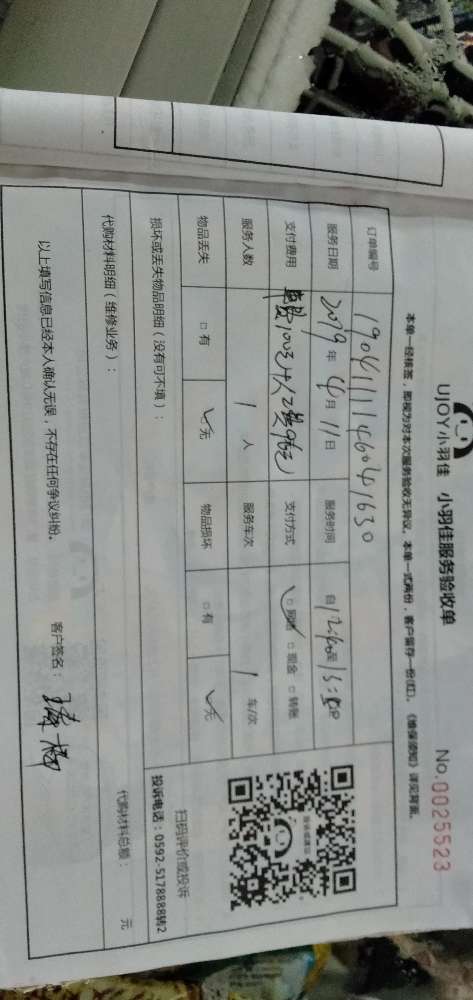 UJOY小羽佳 小羽佳服务验收单 No.0025523
本单一经核签，即视为对本次服务验收无异议。本单一式两份，客户留存一份(红)。《维保须知》详见背面。
订单编号 190411114604041630
服务日期 2019年 4月 11日 服务时间 自
支付费用 支付方式 ☑网付 □现金 □转账
服务人数 1 人 服务车次 1 车/次
物品丢失 □有 ☑无 物品损坏 □有 ☑无
损坏或丢失物品明细（没有可不填）：
代购材料明细（维修业务）：
代购材料总额： 元
以上填写信息已经本人确认无误，不存在任何争议纠纷。
客户签名：
扫码评价或投诉
投诉电话：0592-5178888转2